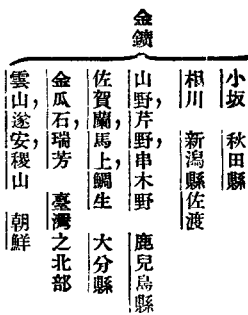 金鑛
小坂 秋田縣
相川 新潟縣佐渡
山野,芹野,串木野 鹿兒島縣
佐賀蘭,馬上,鯛生 大分縣
金瓜石,瑞芳 臺灣之北部
雲山,遂安,稷山 朝鮮